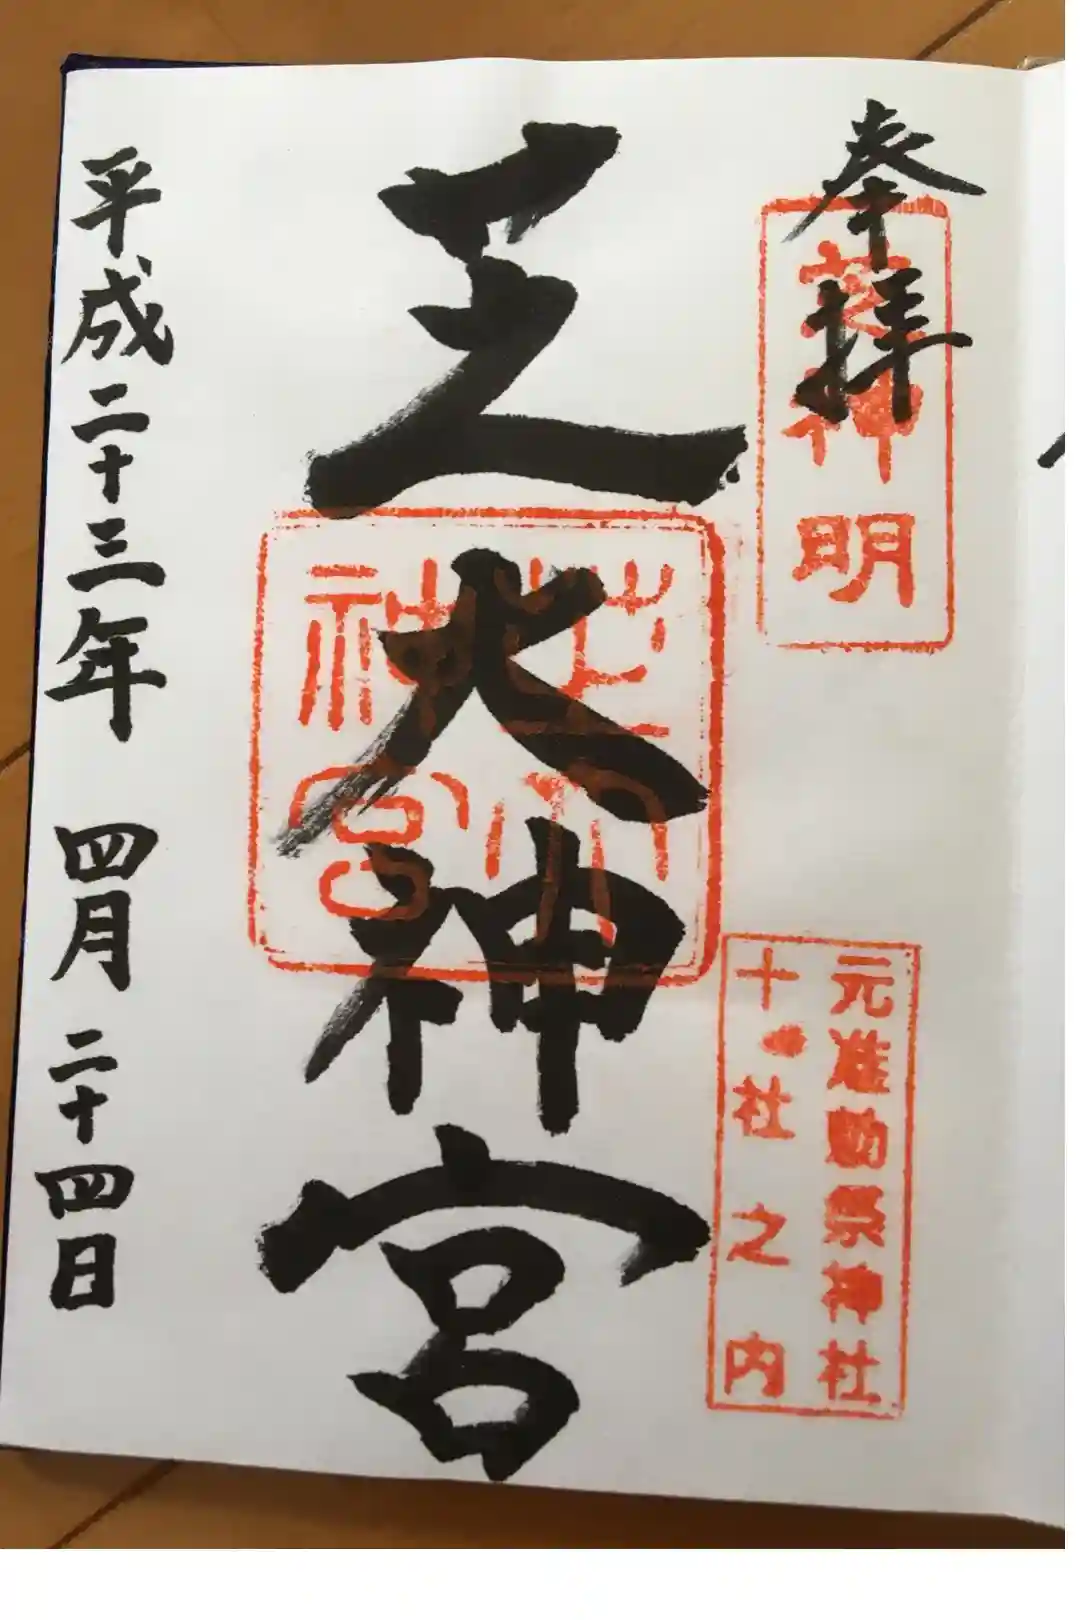 奉拝
芝神明
元准勅祭神社
十社之内
芝大神宮
芝大神宮
平成二十三年 四月 二十四日